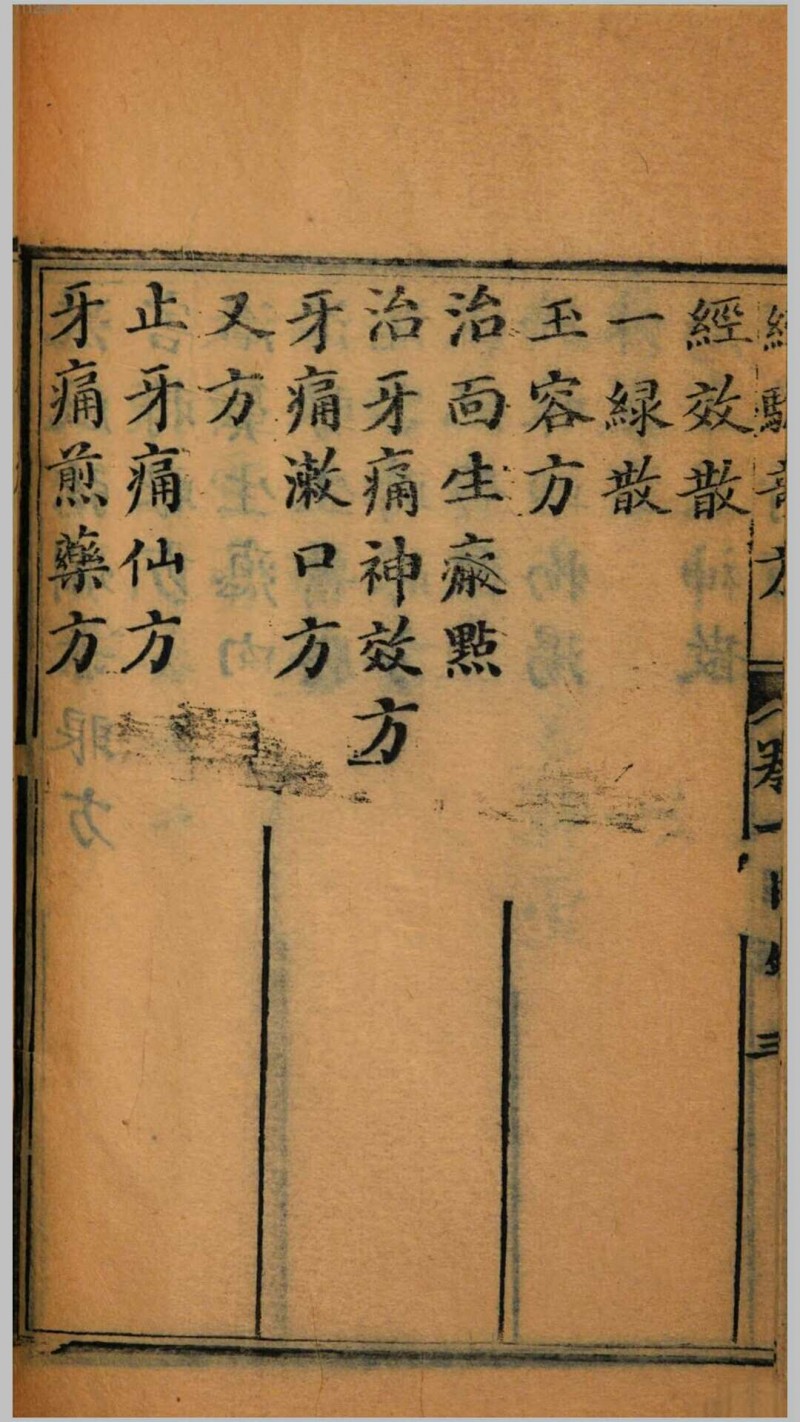 經效散
一緑散
玉容方
治面生㿀點
治牙痛神效方
牙痛漱口方
又方
止牙痛仙方
牙痛煎藥方